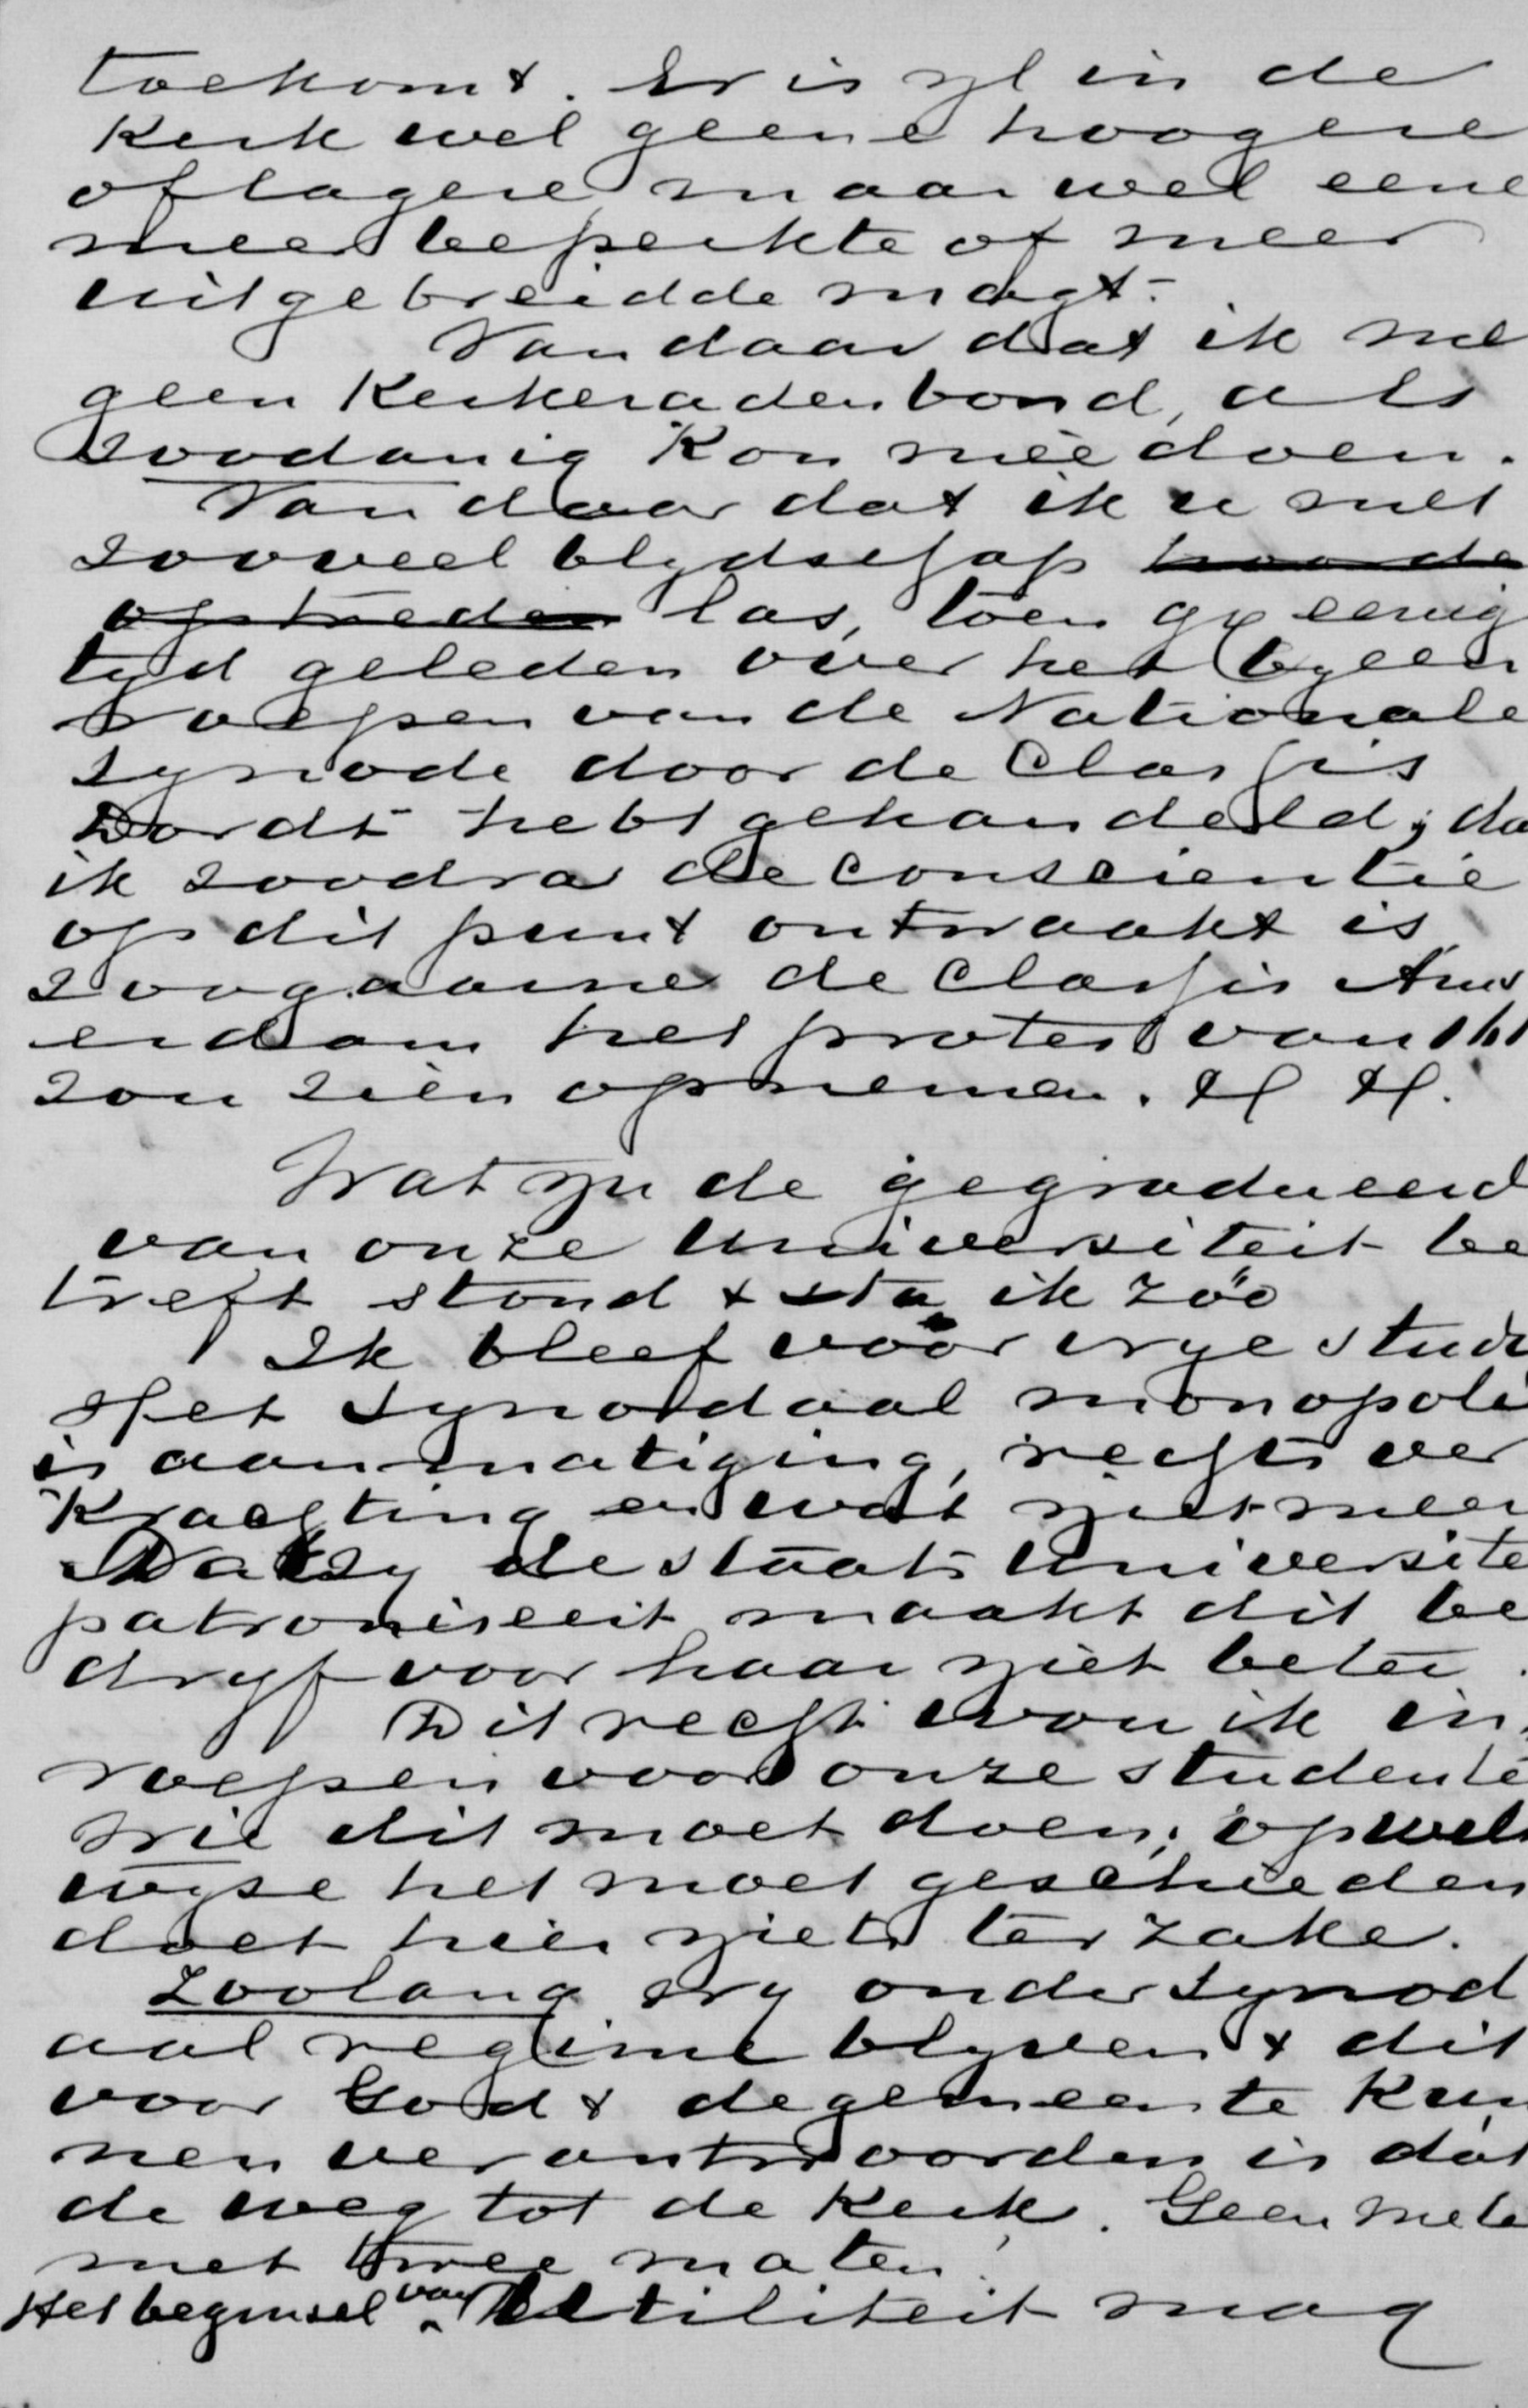 toekomt. Er is yl in de
Kerk wel geene hoogere
of lagere maar wel eene
meer beperkte of meer
uitgebreidde magt.
Vandaar dat ik met
geen Kerkeradenbond, als
zoodanig Kon meêdoen.
Van daar dat ik u met
zooveel blydschap hoorde
optreden las, toen gy eenig
tyd geleden over het byeen
roepen van de Nationale
Synode door de Classis
Dordt hebt gehandeld; da
ik zoodra de conscientie
op dit punt ontwaakt is
zoogaarne de Classis Ams
erdam het protest van
zou zien opnemen.
Wat nu de gegradueerd
van onze Universiteit be
treft stond & sta ik zóó
Ik bleef voor vrye stud
Het Synodaal monopoli
is aanmatiging, rechtsver
Krachting en wat niet meer
Dat zy de staats Universite
patroniseert maakt dit be
dryf voor haar niet beter.
Dit recht wou ik in
roepen voor onze studente
Wie dit moet doen; op welk
wyse het moet geschieden
doet hier niets ter zake.
Zoolang wy onder Synod
aal regime blyven & dit
voor God & de gemeente Kun
nen verantwoorden is dat
de weg tot de Kerk. Geen mete
met twee maten!
Het beginsel van Utiliteit mag